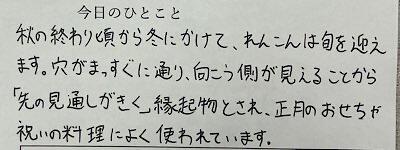 今日のひとこと
秋の終わり頃から冬にかけて、れんこんは旬を迎え
ます。穴がまっすぐに通り、向こう側が見えることから
「先の見通しがきく」縁起物とされ、正月のおせちや
祝いの料理によく使われています。